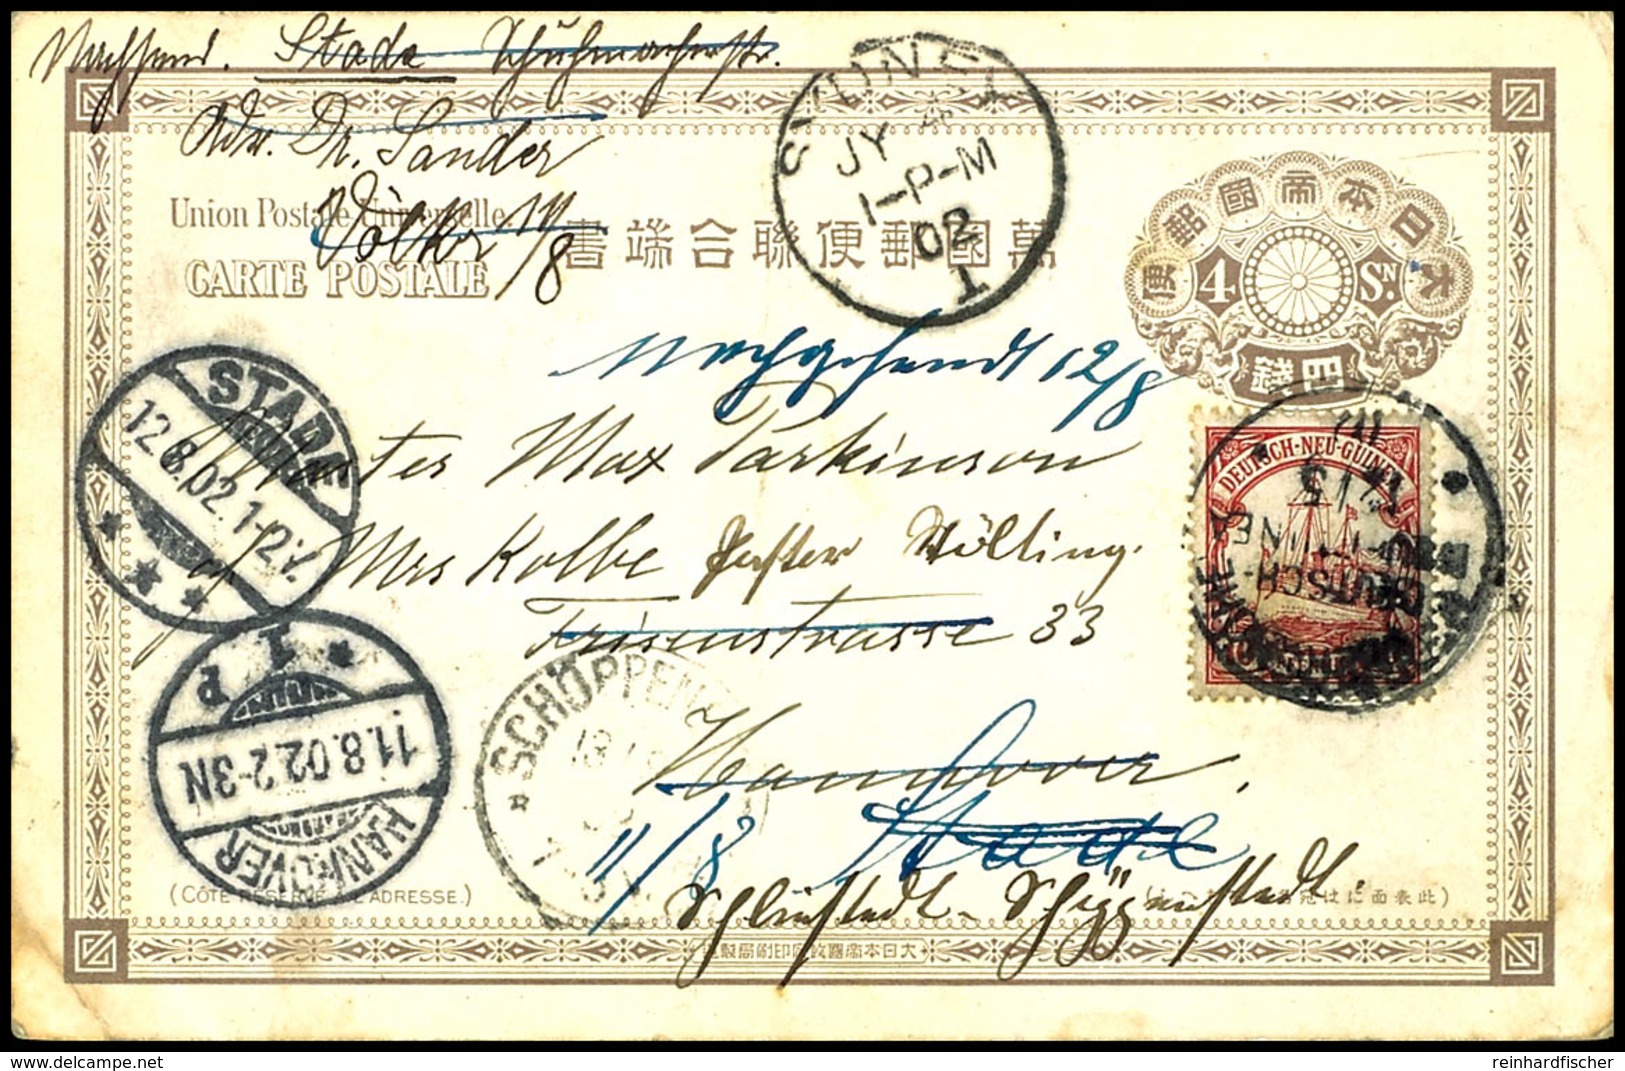 Nachsend. Stade Schuhmacherstr.
Adr. Dr. Sander
Union Postale Universelle.
CARTE POSTALE
Völker 14/8
萬國郵便聯合端書
大日本帝國郵便
4 Sn.
四錢
SYDNEY
JY
1-P-M
02
1
Nachgesandt 12/8
STADE
12.8.02.1-12.V.
Master Max Parkinson
Mrs Kolbe Pastor Wölting.
Friesenstrasse 33
Hannover.
Stade
11/8
DEUTSCH-NEU-GUINEA
10
DEUTSCH-
1 P
11.8.02.2-3N
HANNOVER
SCHÖPPEN
(CÔTÉ RÉSERVÉ À L'ADRESSE.)
Schliestedt - Schöppenstedt.
大日本帝國政府印刷局製造
reinhardfischer